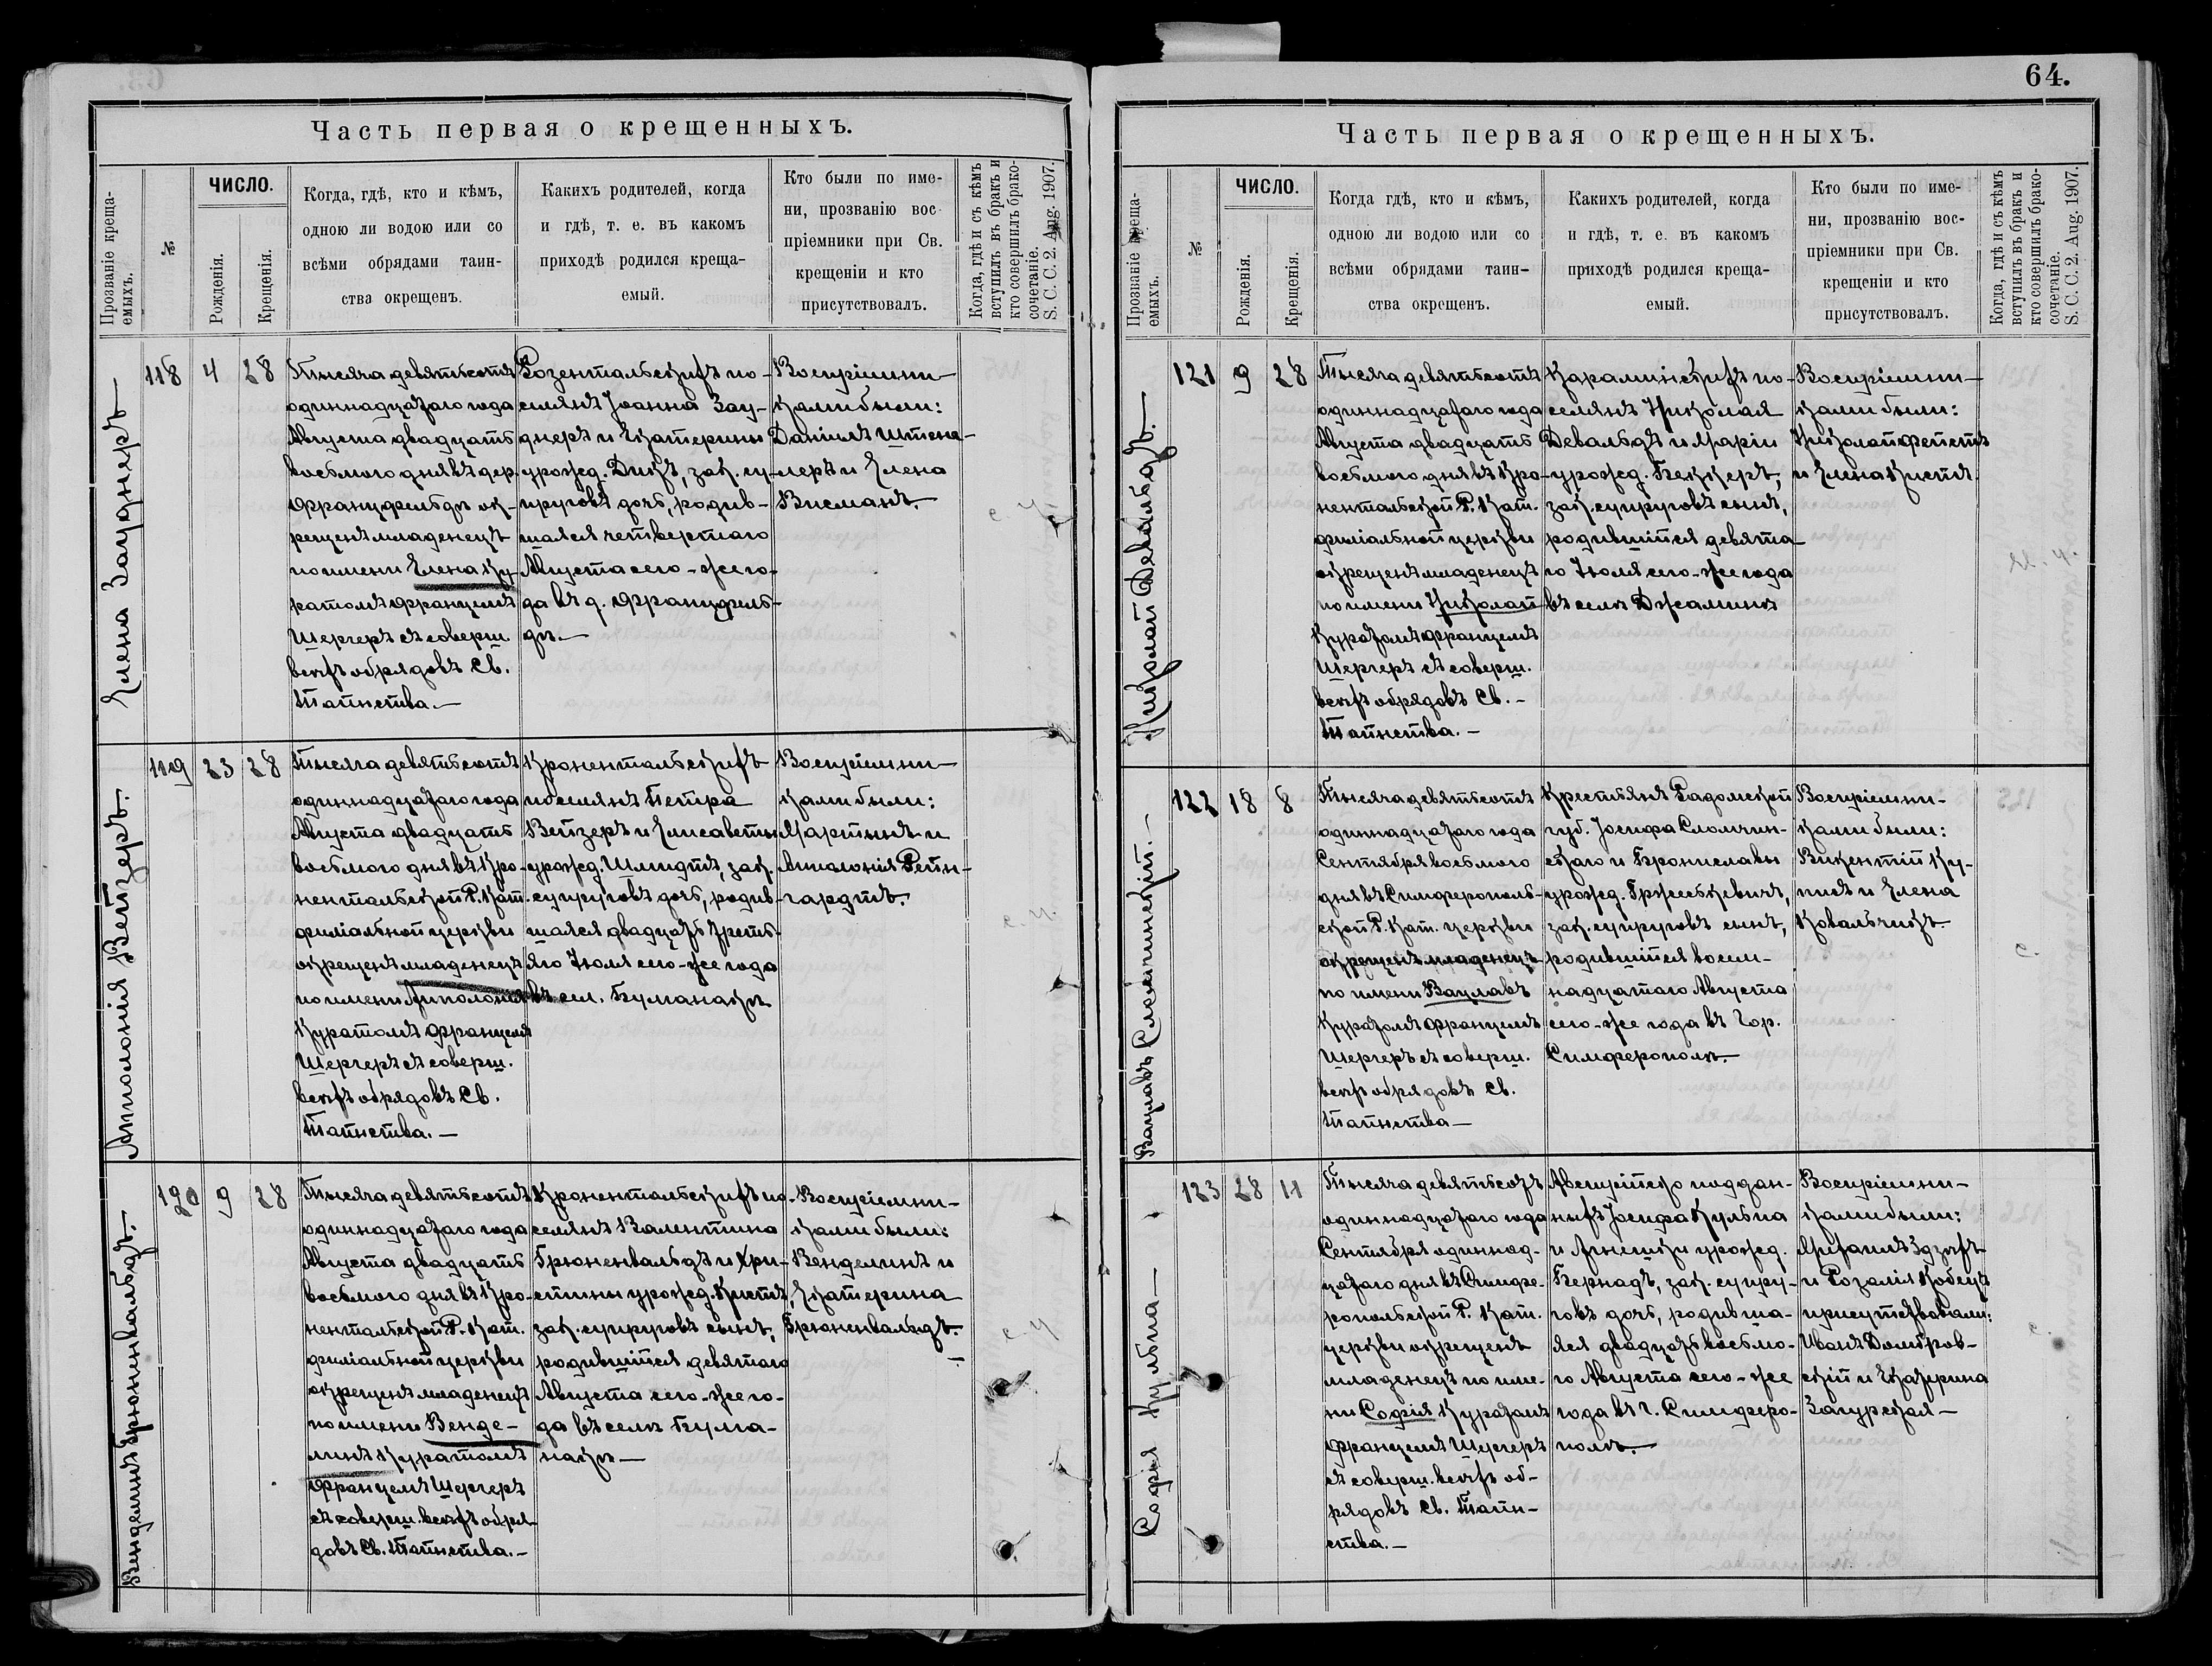 Часть первая о крещенныхъ.
Прозваніе креща-
емыхъ.
№
ЧИСЛО.
Рожденія.
Крещенія.
Когда, гдѣ, кто и кѣмъ,
одною ли водою или со
всѣми обрядами таин-
ства окрещенъ.
Какихъ родителей, когда
и гдѣ, т. е. въ какомъ
приходѣ родился креща-
емый.
Кто были по име-
ни, прозванію вос
пріемники при Св.
крещеніи и кто
присутствовалъ.
Когда, гдѣ и съ кѣмъ
вступилъ въ бракъ и
кто совершилъ брако-
сочетаніе.
S. C. C. 2. Aug. 1907.
Елена Зауднеръ
118
4
28
Тысяча девятьсотъ
одиннадцатаго года
Августа двадцать
восьмого дня въ дер.
Францфельдъ ок-
рещенъ младенецъ
по имени Елена Ку-
ратомъ Францемъ
Шергеръ съ соверш.
всѣхъ обрядовъ Св.
Таинства.—
Розентальскихъ по-
селянъ Іоанна Зау-
днеръ и Екатерины
урожд. Дикъ, зак. су-
пруговъ дочь, родив-
шаяся четвертаго
Августа сего-же го-
да въ д. Францфель-
дъ.—
Воспріемни-
ками были:
Даніилъ Штена-
леръ и Елена
Висманъ.
Апполонія Вейзеръ.
119
23
28
Тысяча девятьсотъ
одиннадцатаго года
Августа двадцать
восьмого дня въ Кро-
нентальской Р. Кат.
филіальной церкви
окрещенъ младенецъ
по имени Апполонія
Куратомъ Францемъ
Шергеръ съ соверш.
всѣхъ обрядовъ Св.
Таинства.—
Кронентальскихъ
поселянъ Петра
Вейзеръ и Елисаветы
урожд. Шмидтъ, зак.
супруговъ дочь, родив-
шаяся двадцать треть-
яго Іюля сего-же года
въ сел. Буманакъ
Воспріемни-
ками были:
Мартынъ и
Апполонія Рейн-
гардтъ.
Венделинъ Грюненвальдъ.
120
9
28
Тысяча девятьсотъ
одиннадцатаго года
Августа двадцать
восьмого дня въ Кро-
нентальской Р. Кат.
филіальной церкви
окрещенъ младенецъ
по имени Венде-
линъ Куратомъ
Францемъ Шергеръ
съ соверш. всѣхъ обря-
довъ Св. Таинства.—
Кронентальскихъ по-
селянъ Валентина
Грюненвальдъ и Хри-
стины урожд. Кистъ,
зак. супруговъ сынъ,
родившійся девятаго
Августа сего-же го-
да въ селѣ Бума-
накъ—
Воспріемни-
ками были:
Венделинъ и
Екатерина
Грюненвальдъ.
64.
Часть первая о крещенныхъ.
Прозваніе креща-
емыхъ.
№
ЧИСЛО.
Рожденія.
Крещенія.
Когда гдѣ, кто и кѣмъ,
одною ли водою или со
всѣми обрядами таин-
ства окрещенъ.
Какихъ родителей, когда
и гдѣ, т. е. въ какомъ
приходѣ родился креща-
емый.
Кто были по име-
ни, прозванію вос-
пріемники при Св.
крещеніи и кто
присутствовалъ.
Когда, гдѣ и съ кѣмъ
вступилъ въ бракъ и
кто совершилъ брако-
сочетаніе.
S. C. C. 2. Aug. 1907.
Николай Девальдъ.
121
9
28
Тысяча девятьсотъ
одиннадцатаго года
Августа двадцать
восьмого дня въ Кро-
нентальской Р. Кат.
филіальной церкви
окрещенъ младенецъ
по имени Николай
Куратомъ Францемъ
Шергеръ съ соверш.
всѣхъ обрядовъ Св.-
Таинства.-
Караминскихъ по-
селянъ Николая
Девальдъ и Маріи
урожд. Беккеръ,
зак. супруговъ сынъ,
родившійся девята-
го Іюля сего-же года
въ селѣ Джаминъ
Воспріемни-
ками были:
Николай Фейстъ
и Елена Кистъ.
Вацлавъ Сломчинскій.
122
18
8
Тысяча девятьсотъ
одиннадцатаго года
Сентября восьмого
дня въ Симферополь-
ской Р. Кат. церкви
окрещенъ младенецъ
по имени Вацлавъ
Куратомъ Францемъ
Шергеръ съ соверш.
всѣхъ обрядовъ Св.
Таинства—
Крестьянъ Радомской
губ. Іосифа Сломчин-
скаго и Брониславы
урожд. Гржеськевичъ,
зак. супруговъ сынъ,
родившійся восем-
надцатаго Августа
сего-же года въ гор.
Симферополѣ.
Воспріемни-
ками были:
Викентій Ку-
пись и Елена
Ковальчикъ.
с.
София Кульпа
123
28
11
Тысяча девятьсотъ
одиннадцатаго года
Сентября одиннад-
цатаго дня въ Симфе-
ропольской Р. Кат.
церкви окрещенъ
младенецъ по име-
ни Софія Куратомъ
Францемъ Шергеръ
съ соверш. всѣхъ об-
рядовъ Св. Таин-
ства.—
Австрійско поддан-
ныхъ Іосифа Кульпа
и Агнешки урожд.
Бернадъ, зак. супру-
говъ дочь, родивша-
яся двадцать восьмо-
го Августа сего-же
года въ г. Симферо-
полѣ.—
Воспріемни-
ками были:
и Розалія Кобецъ
присутствовали:
Иванъ Домбров-
скій и Екатерина
Загурская—